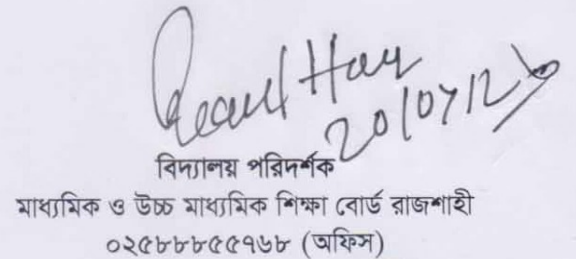 20/07/2
বিদ্যালয় পরিদর্শক
মাধ্যমিক ও উচ্চ মাধ্যমিক শিক্ষা বোর্ড রাজশাহী
০২৫৮৮৮৫৫৭৬৮ (অফিস)